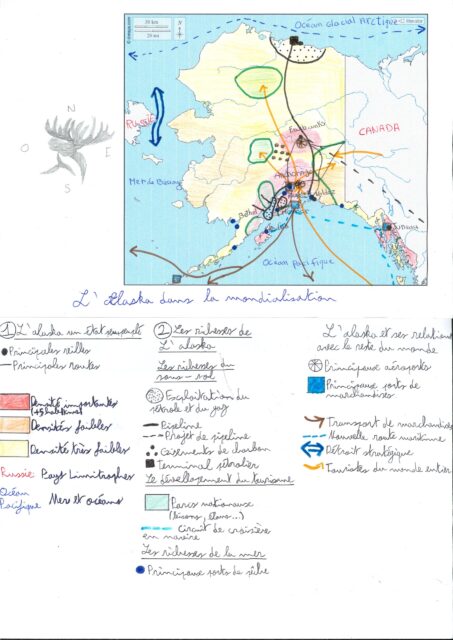 30 km
20 mi
N
Océan glacial Arctique
Russie
CANADA
Fairbanks
Anchorage
Valdez
Juneau
Mer de Béring
Océan Pacifique
N
O
E
S
L'Alaska dans la mondialisation
① L'alaska un état souspeuplé
Principales villes
Principales routes
Densité importantes
Densités faibles
Densités très faibles
Russie Pays Limitrophes
Océan Pacifique Mers et océans
② Les richesses de
L'alaska
Les richesses du
sous-sol
Exploitation du
pétrole et du gaz
Pipeline
Projet de pipeline
Gisements de charbon
Terminal pétrolier
Le développement du tourisme
Parcs nationaux
(bisons, élans...)
Circuit de croisière
en navire
Les richesses de la mer
Principaux ports de pêche
L'alaska et ses relations
avec le reste du monde
Principaux aéroports
Principaux ports de
marchandises
Transport de marchandises
Nouvelle route maritime
Détroit stratégique
Touristes du monde entier